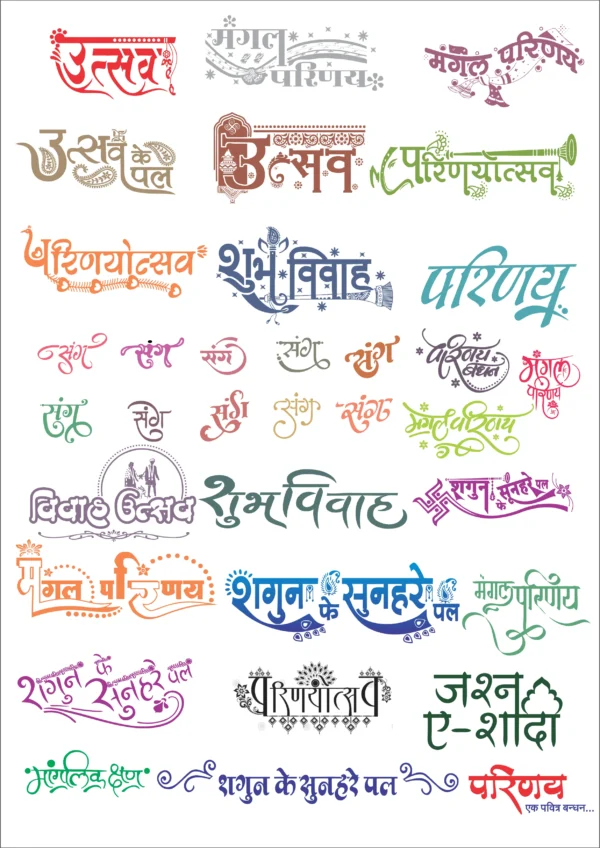 उत्सव
मंगल
परिणय
मंगल परिणय
उत्सव के
पल
उत्सव
परिणयोत्सव
परिणयोत्सव
शुभ विवाह
परिणय
संग
संग
संग
संग
संग
परिणय
बंधन
मंगल
परिणय
संग
संग
संग
संग
संग
मंगल परिणय
विवाह उत्सव
शुभ विवाह
शगुन के सुनहरे पल
मंगल परिणय
शगुन के सुनहरे पल
मंगल परिणय
शगुन के
सुनहरे पल
परिणयोत्सव
जश्न
ए-शादी
मांगलिक क्षण
शगुन के सुनहरे पल
परिणय
एक पवित्र बन्धन...